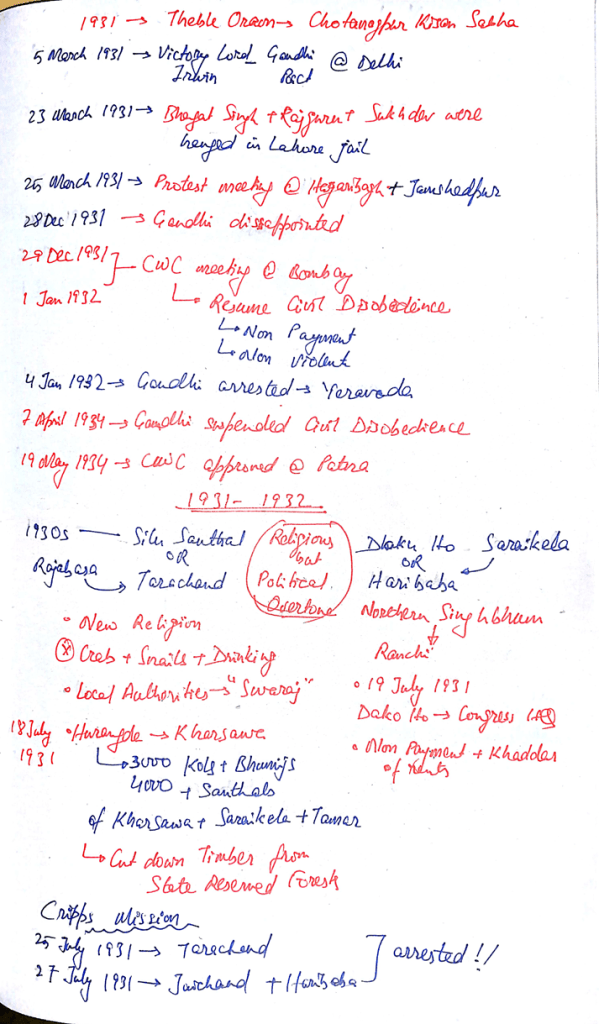 1931 → Theble Oraon → Chotanagpur Kisan Sabha
5 March 1931 → Victory Lord Gandhi @ Delhi
Irwin Pact
23 March 1931 → Bhagat Singh + Rajguru + Sukhdev were
hanged in Lahore jail
25 March 1931 → Protest meeting @ Hazaribagh + Jamshedpur
28 Dec 1931 → Gandhi dissappointed
29 Dec 1931
CWC meeting @ Bombay
1 Jan 1932
↳ Resume Civil Disobedience
↳ Non Payment
↳ Non Violent
4 Jan 1932 → Gandhi arrested → Yeravada
7 April 1934 → Gandhi suspended Civil Disobedience
19 May 1934 → CWC approved @ Patna
1931 - 1932
1930s — Silu Santhal
OR
Rajabasa → Tarachand
Religious
but
Political
Overtone
Dhaku Ho Saraikela
OR
Haribaba
Northern Singhbhum
↓
Ranchi
• New Religion
ⓧ Crab + Snails + Drinking
• Local Authorities → "Swaraj"
• 19 July 1931
Dako Ho → Congress
• Non Payment + Khaddar
of rents
18 July
1931
• Hurangda → Kharsawa
↳ 3000 Kols + Bhumijs
4000 + Santhals
of Kharsawa + Saraikela + Tamar
↳ Cut down Timber from
State Reserved Forests
Cripps Mission
25 July 1931 → Tarachand
27 July 1931 → Jaichand + Haribaba
arrested!!